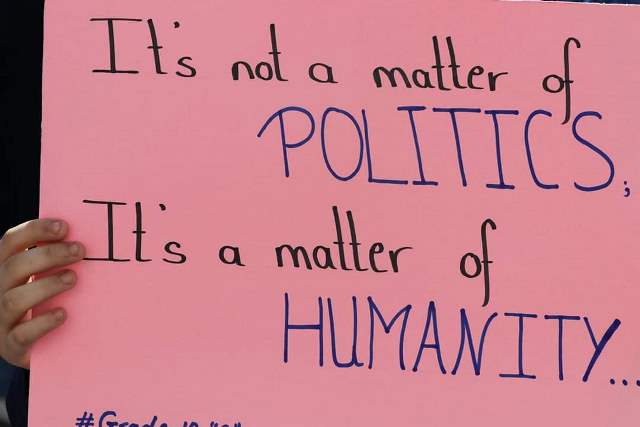 It's not a matter of
POLITICS;
It's a matter of
HUMANITY...
#Grade